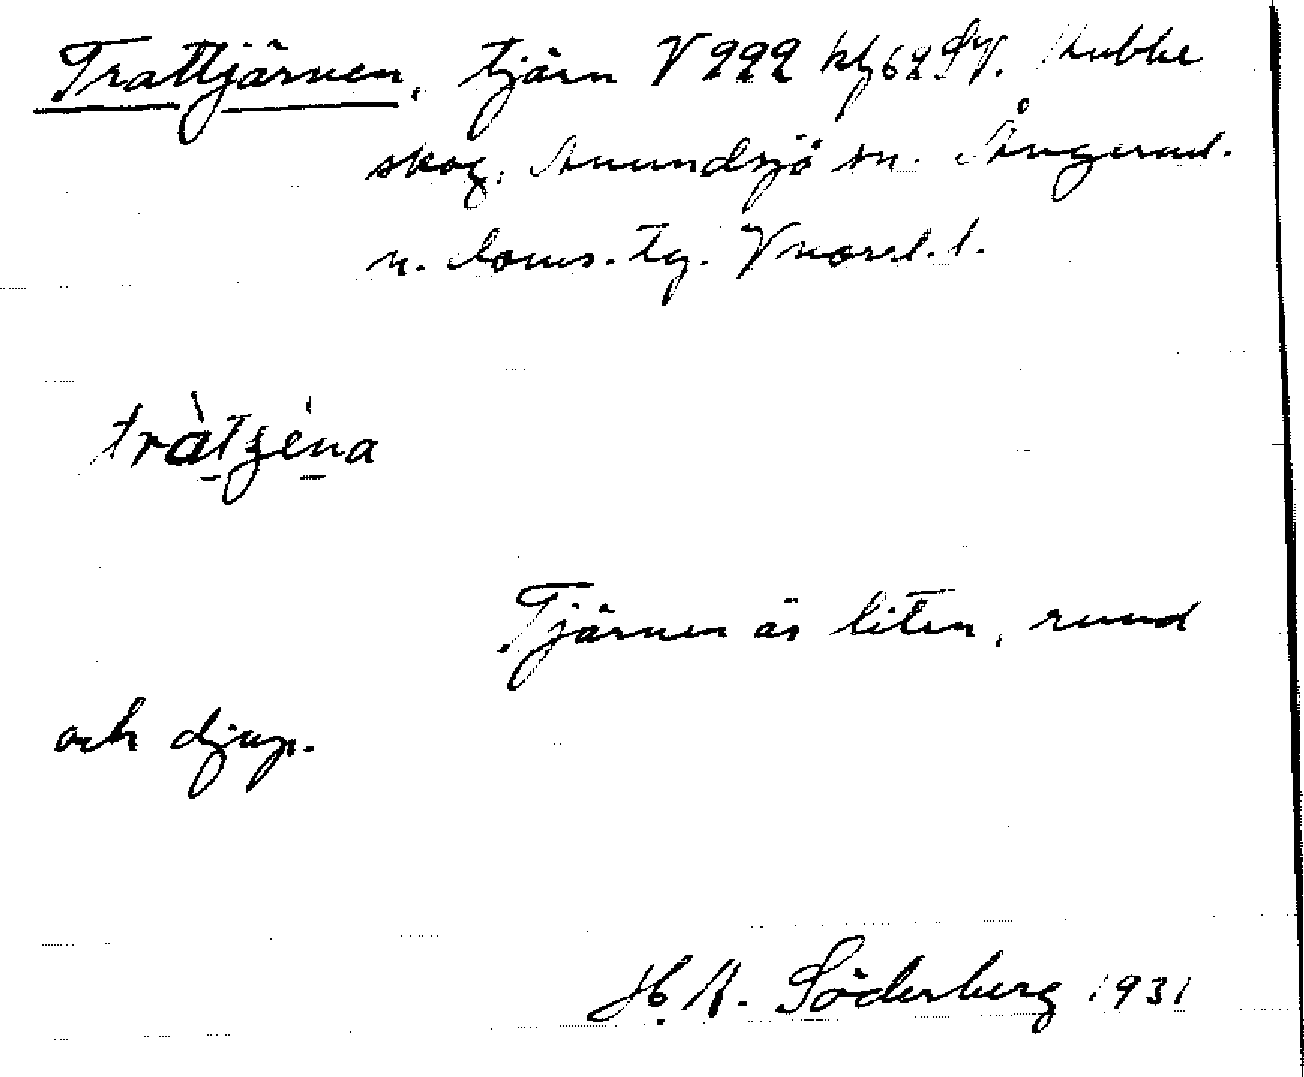 Trattjärnen, tjärn V 222 kbl 62 SV. Kubbe
skog, Anundsjö sn. Ångerml.
n. doms. tg. Vnorrl. l.
tràtʒèna
Tjärnen är liten, rund
och djup.
H. A. Söderberg 1931